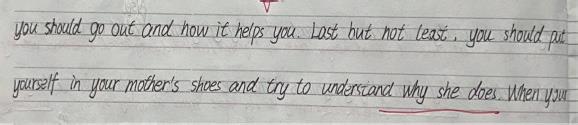 you should go out and how it helps you. Last but not least, you should put
yourself in your mother's shoes and try to understand why she does. When your